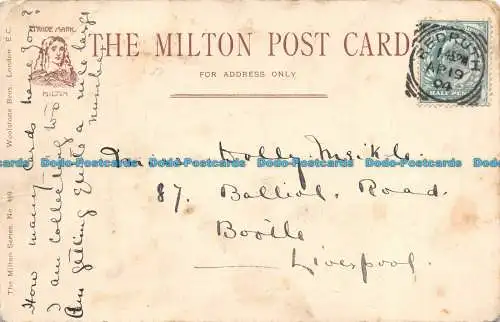 TRADE MARK
MILTON
THE MILTON POST CARD
FOR ADDRESS ONLY.
REDRUTH
HALF PENNY
Miss Dolly Meikle
87. Balliol Road.
Bootle
Liverpool.
How many cards have you?
I am collecting too
Am getting quite a nice large
number
The Milton Series, No.
Woolstone Bros. London E.C.
Dodo-Postcards Dodo-Postcards Dodo-Postcards Dodo-Postcards Dodo-Postcards